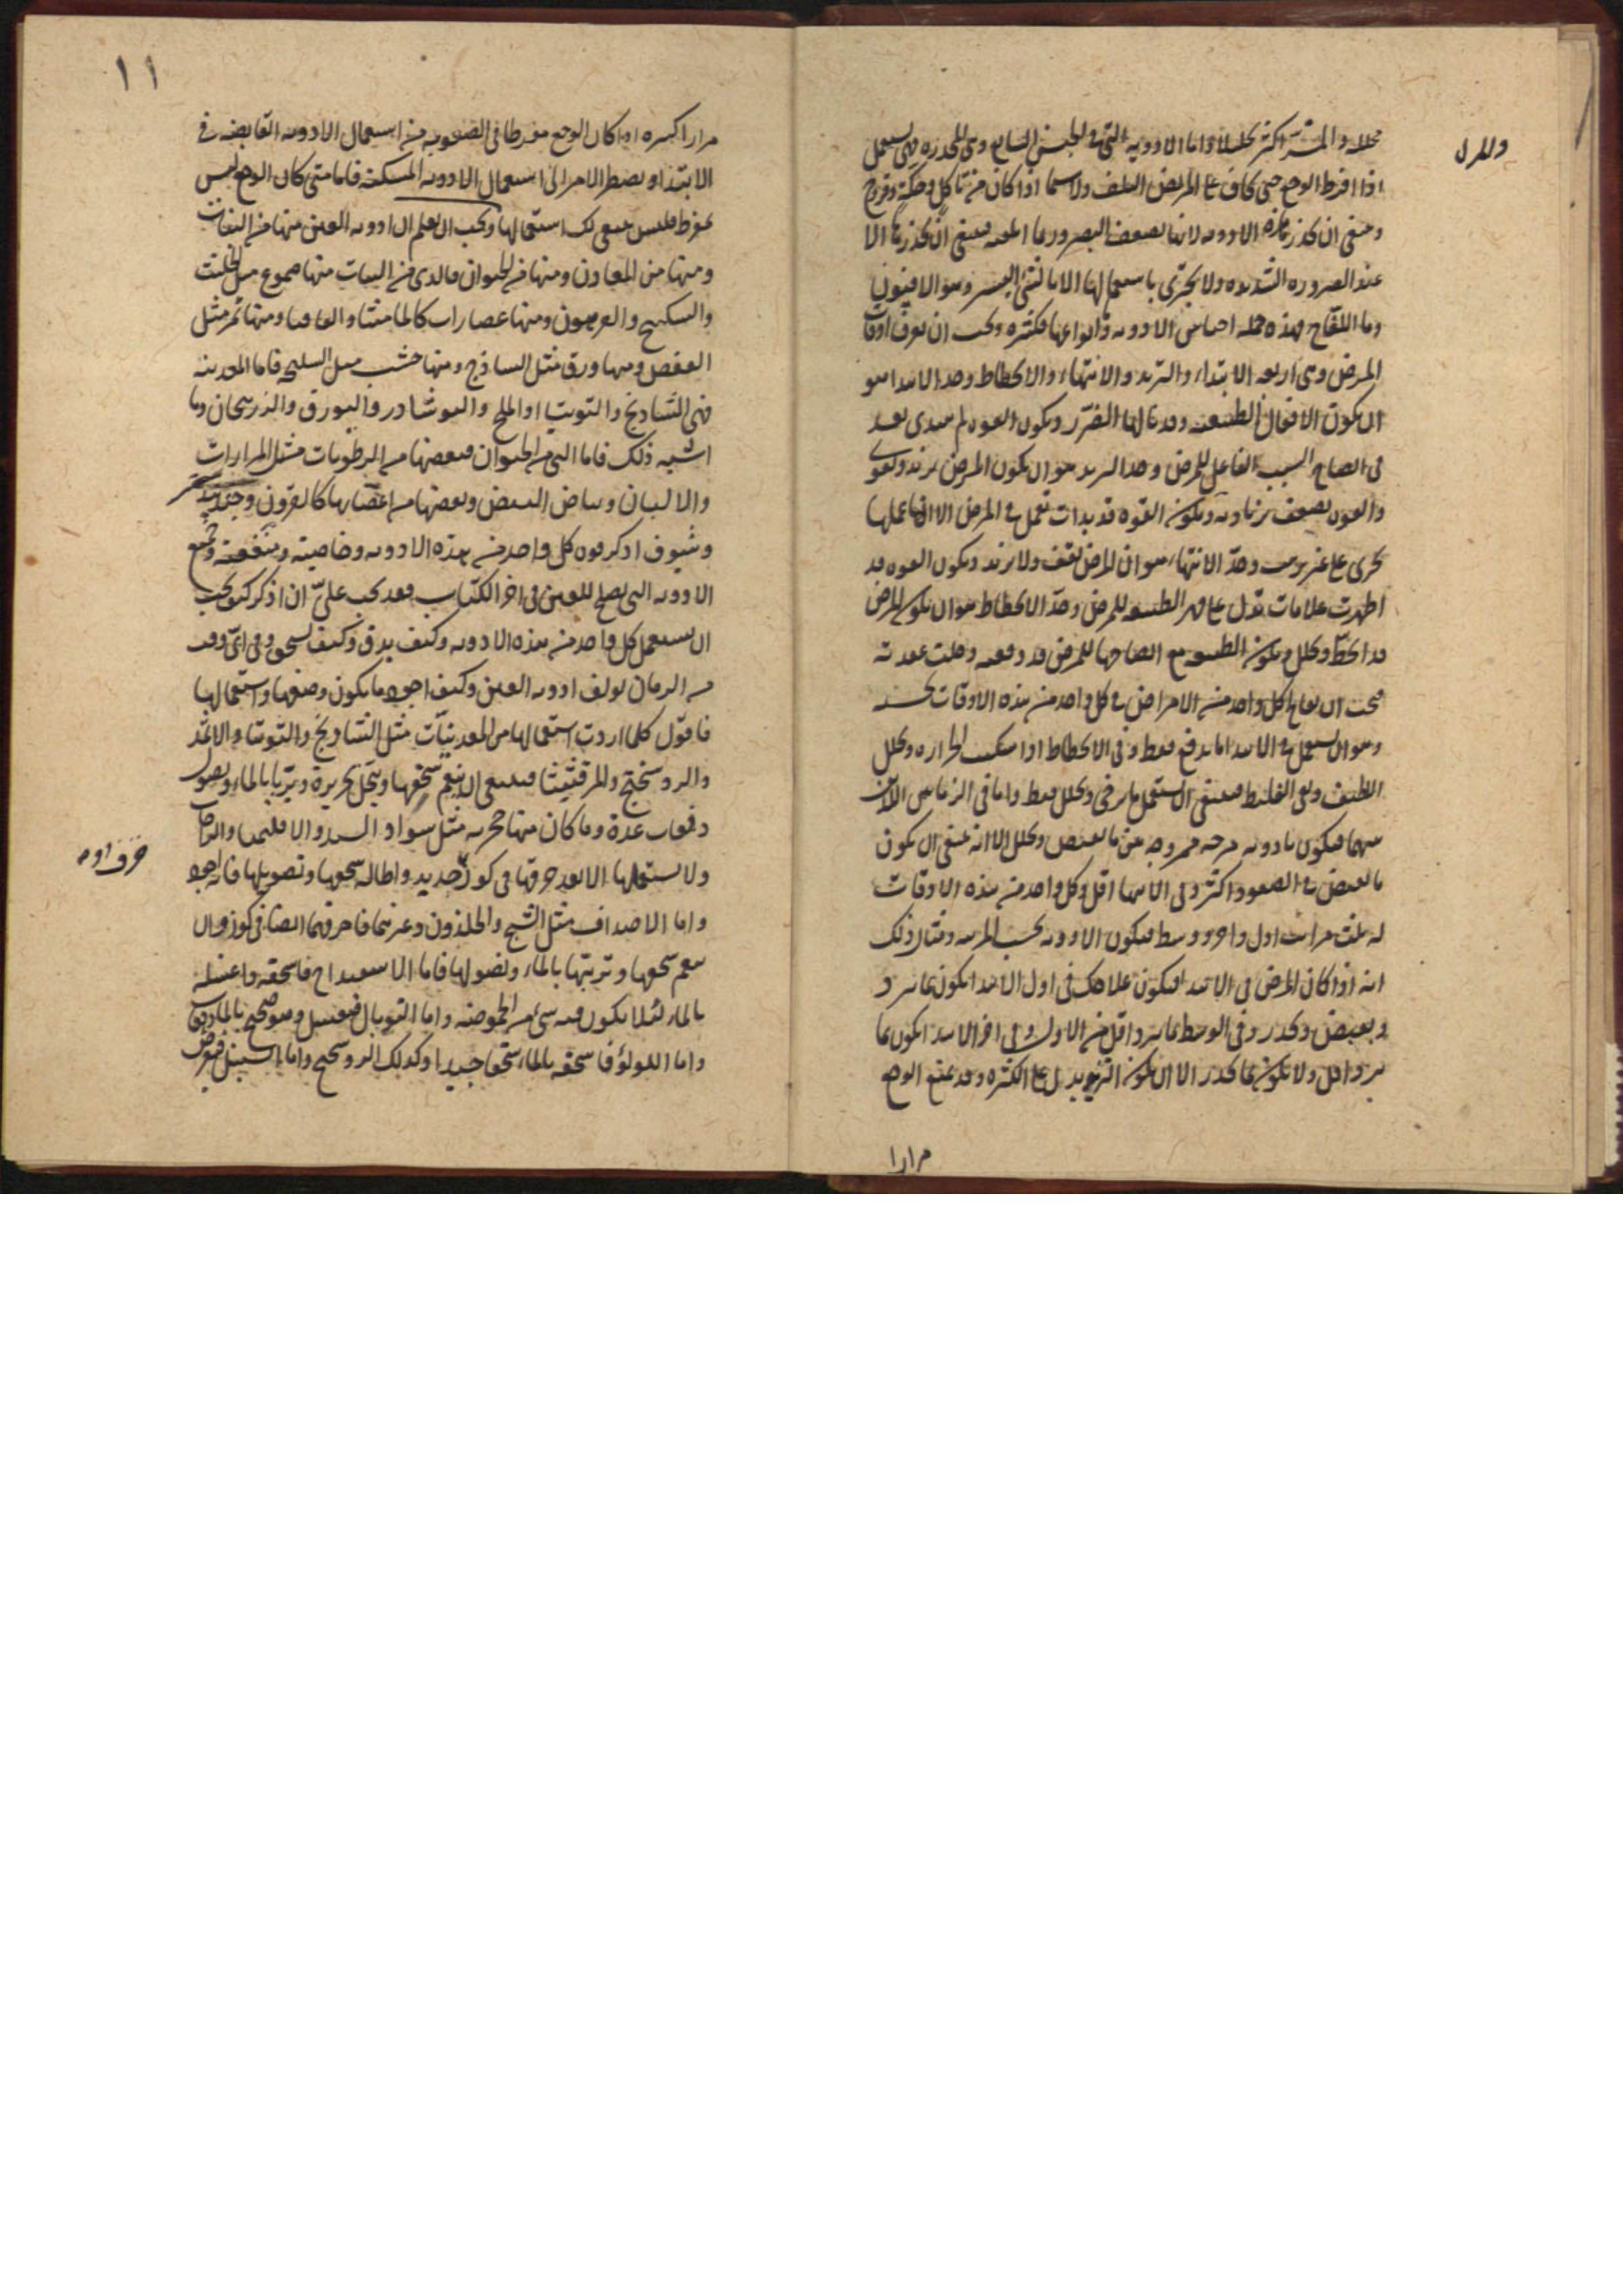 محللا والمر اكثر تحليلا واما الادوية التى فى الجنس السابع وهى المخدره فهى تستعمل
اذا افرط الوجع حتى يخاف على المريض التلف ولاسيما اذا كان من تاكل وحكة وقروح
وينبغى ان تحذر هذه الادويه لانها تضعف البصر وربما اتلفته فينبغى ان تحذرها الا
عند الضروره الشديده ولا تجترى باستعمالها الا بالشىء اليسير وهو الافيون
وما اللفاح فهذه جمله اجناس الادويه وانواعها فكثيره ويجب ان تعرف اوقات
المرض وهى اربعه الابتداء والتزيد والانتهاء والانحطاط وحد الابتدا هو
ان تكون الافعال الطبيعيه وقد نالها الضرر وتكون القوه لم تبتدى بعد
فى انضاج السبب الفاعل للمرض وحد التزيد هو ان يكون المرض يزيد ويقوى
والقوه تضعف بزيادته وتكون القوه قد بدات تعمل فى المرض الا ان عملها
يجرى على غير ترتيب وحد الانتهاء هو ان المرض يقف ولا يزيد وتكون القوه قد
اظهرت علامات تدل على قهر الطبيعه للمرض وحد الانحطاط هو ان يكون المرض
قد انحط وتحلل وتكون الطبيعه مع انضاجها للمرض قد دفعته وحلت عقدته
فيجب ان تعالج كل واحد من الامراض فى كل واحد من هذه الاوقات بحسبه
وهو ان تستعمل فى الابتدا ما يدفع فقط وفى الانحطاط اذا سكنت الحراره وتحلل
اللطيف وبقى الغليظ فينبغى ان تستعمل ما يرخى ويحلل فقط واما فى الزمانين اللذين
بينهما فيكون بادويه مركبه ممزوجه مما يقبض ويحلل الا انه ينبغى ان يكون
ما يقبض فى الصعود اكثر وفى الانتها اقل وكل واحد من هذه الاوقات
له ثلث مراتب اول واخر ووسط فيكون الادويه بحسب المرتبه ومثال ذلك
انه اذا كان المرض فى الابتدا فيكون علاجك فى اول الابتدا يكون بما يبرد
ويقبض ويخدر وفى الوسط بما يبرد اقل من الاول وفى اخر الابتدا يكون بما
يبرد اقل ولا يكون بما يخدر الا ان يكون التزيد يدل على الكثره وقد يمنع الوجع
مرارا
١١
مرارا كثيره اذا كان الوجع مفرطا فى الصعوبه من استعمال الادويه القابضه فى
الابتدا ويضطر الامر الى استعمال الادويه المسكنه فاما متى كان الوجع ليس
بمفرط فليس ينبغى لك استعمالها ويجب ان تعلم ان ادويه العين منها من النبات
ومنها من المعادن ومنها من الحيوان فالذى من النبات منها صموغ مثل الحلتيت
والسكبينج والفربيون ومنها عصارات كالماميثا والقاقيا ومنها ثمر مثل
العفص ومنها ورق مثل الساذج ومنها خشب مثل السليخه فاما المعدنيه
فهى الشاذنج والتوتيا والملح والنوشادر والبورق والزرنيخان وما
اشبه ذلك فاما التى من الحيوان فبعضها من الرطوبات مثل المرارات
والالبان وبياض البيض وبعضها من اعضائها كالقرون وجندبيدستر
وسوف اذكر قوه كل واحد من هذه الادويه وخاصيته ومنفعته وجميع
الادويه التى تصلح للعين فى اخر الكتاب فقد يجب علىّ ان اذكر كيف يجب
ان يستعمل كل واحد من هذه الادويه وكيف يدق وكيف يسحق وفى اى وقت
من الزمان تولف ادويه العين وكيف اجود ما يكون وصفها واستعمالها
فاقول كلما اردت استعمالها من المعدنيات مثل الشاذنج والتوتيا والاثمد
والروسختج والمرقشيثا فينبغى ان ينعم سحقها وينخل بحريرة ويربا بالماء ويصول
دفعات عدة وما كان منها حجريه مثل سواد السند والاقليميا والرصاص
ولا تستعملها الا بعد حرقها فى كوز جديد واطاله سحقها وتصويلها فانه اجود
واما الاصداف مثل الشنج والحلزون وغيرهما فاحرقهما ايضا فى كوز وان
ينعم سحقها وتربيتها بالماء وتصولها فاما الاسفيداج فاسحقه واغسله
بالماء لئلا يكون فيه شىء من الحموضه واما التوبال فيغسل وهو صحيح بالماء
واما اللولو فاسحقه بالماء سحقا جيدا وكذلك الروسختج واما